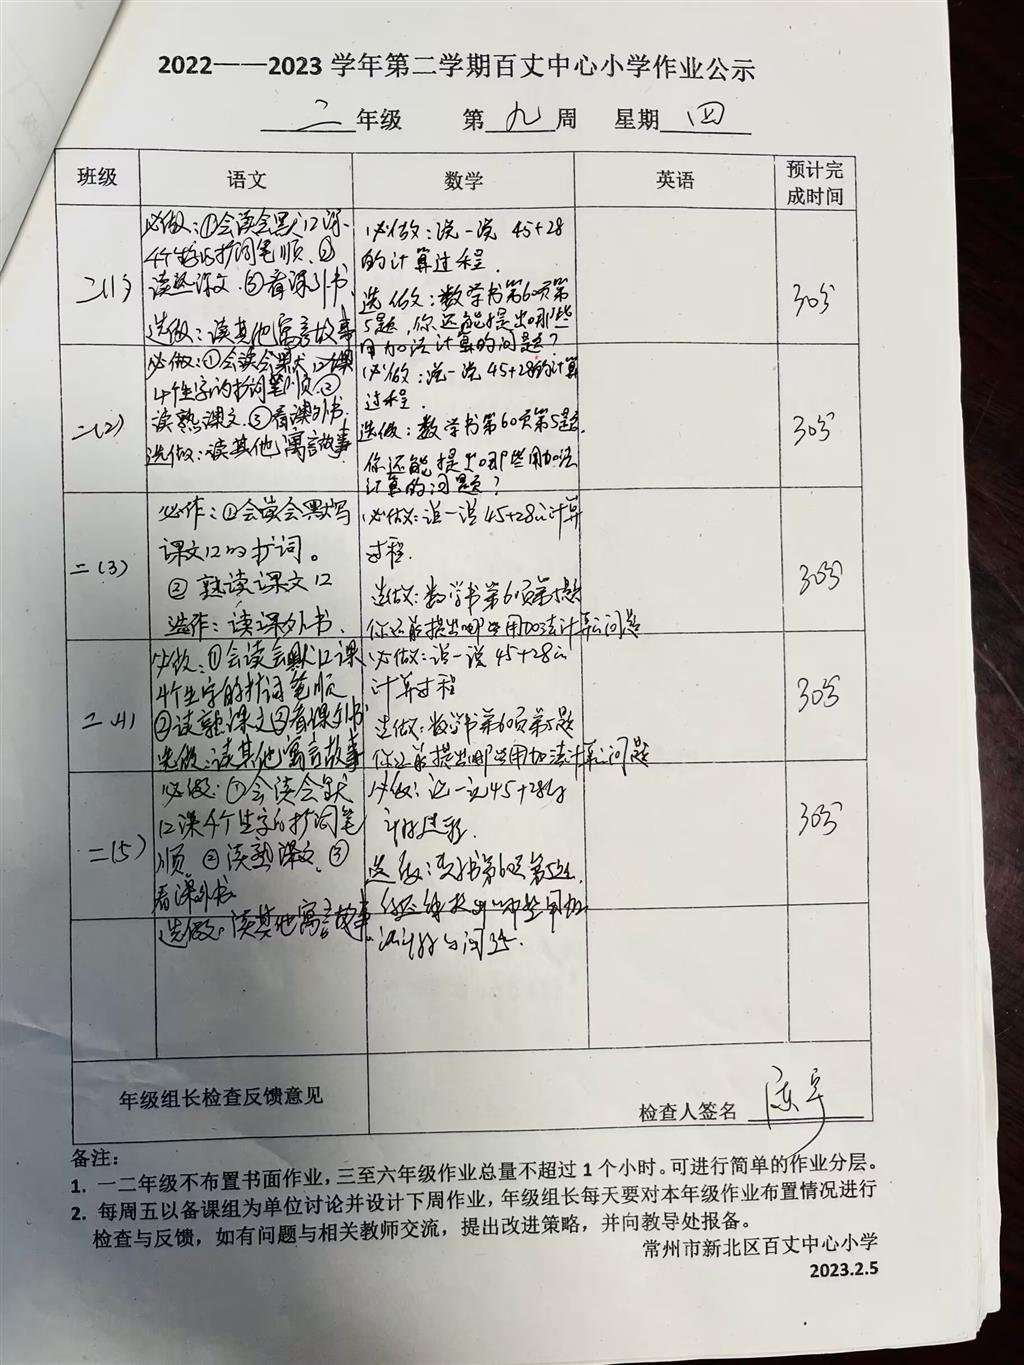 2022——2023 学年第二学期百丈中心小学作业公示
二年级 第九周 星期四
班级 语文 数学 英语 预计完成时间
二(1)
必做：①会读会默12课
4个生字的扩词笔顺.②
读熟课文.③看课外书.
选做：读其他寓言故事
必做：说一说 45+28
的计算过程.
选做：数学书第60页第
5题,你还能提出哪些
用加法计算的问题？
30分
二(2)
必做：①会读会默12课
4个生字的扩词笔顺.②
读熟课文.③看课外书.
选做：读其他寓言故事
必做：说一说 45+28的计算
过程.
选做：数学书第60页第5题.
你还能提出哪些用加法
计算的问题？
30分
二(3)
必作：①会读会默写
课文12的扩词。
② 熟读课文12
选作：读课外书.
必做：说一说45+28的计算
过程.
选做：数学书第60页第5题
你还能提出哪些用加法计算的问题
30分
二(4)
必做：①会读会默12课
4个生字的扩词笔顺
②读熟课文③看课外书
选做：读其他寓言故事
必做：说一说 45+28的
计算过程
选做：数学书第60页第5题
你还能提出哪些用加法计算的问题
30分
二(5)
必做：①会读会默
12课4个生字的扩词笔
顺 ②读熟课文.③
看课外书
选做：读其他寓言故事
必做：说一说45+28的
计算过程.
选做：数书第60页第5题.
你还能提出哪些用加
法计算的问题.
30分
年级组长检查反馈意见
检查人签名 陈宇
备注：
1. 一二年级不布置书面作业，三至六年级作业总量不超过 1 个小时。可进行简单的作业分层。
2. 每周五以备课组为单位讨论并设计下周作业，年级组长每天要对本年级作业布置情况进行
检查与反馈，如有问题与相关教师交流，提出改进策略，并向教导处报备。
常州市新北区百丈中心小学
2023.2.5